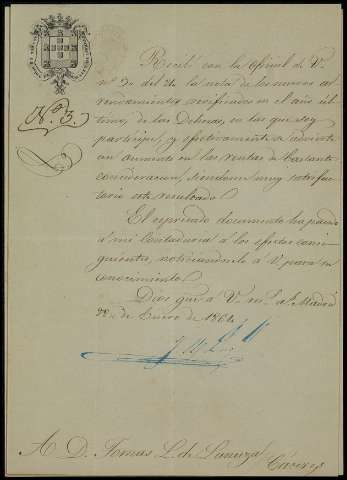 Nº 3.
Recibí con la Oficial de V.
nº 3º del 21 la nota de los nuevos ar
rendamientos verificados en el año úl
timo, de las Dehesas, en las que soy
partícipe, y efectivamente se advierte
un aumento en las rentas de bastante
consideracion, siendome muy satisfac
torio este resultado.
El espresado documento ha pasado
á mi Contaduria á los efectos consi
guientes, noticiandoselo á V. para su
conocimiento.
Dios gue á V. ms. as. Madrid
de Enero de 1864
A D. Tomas L. de Lanuza Cáceres